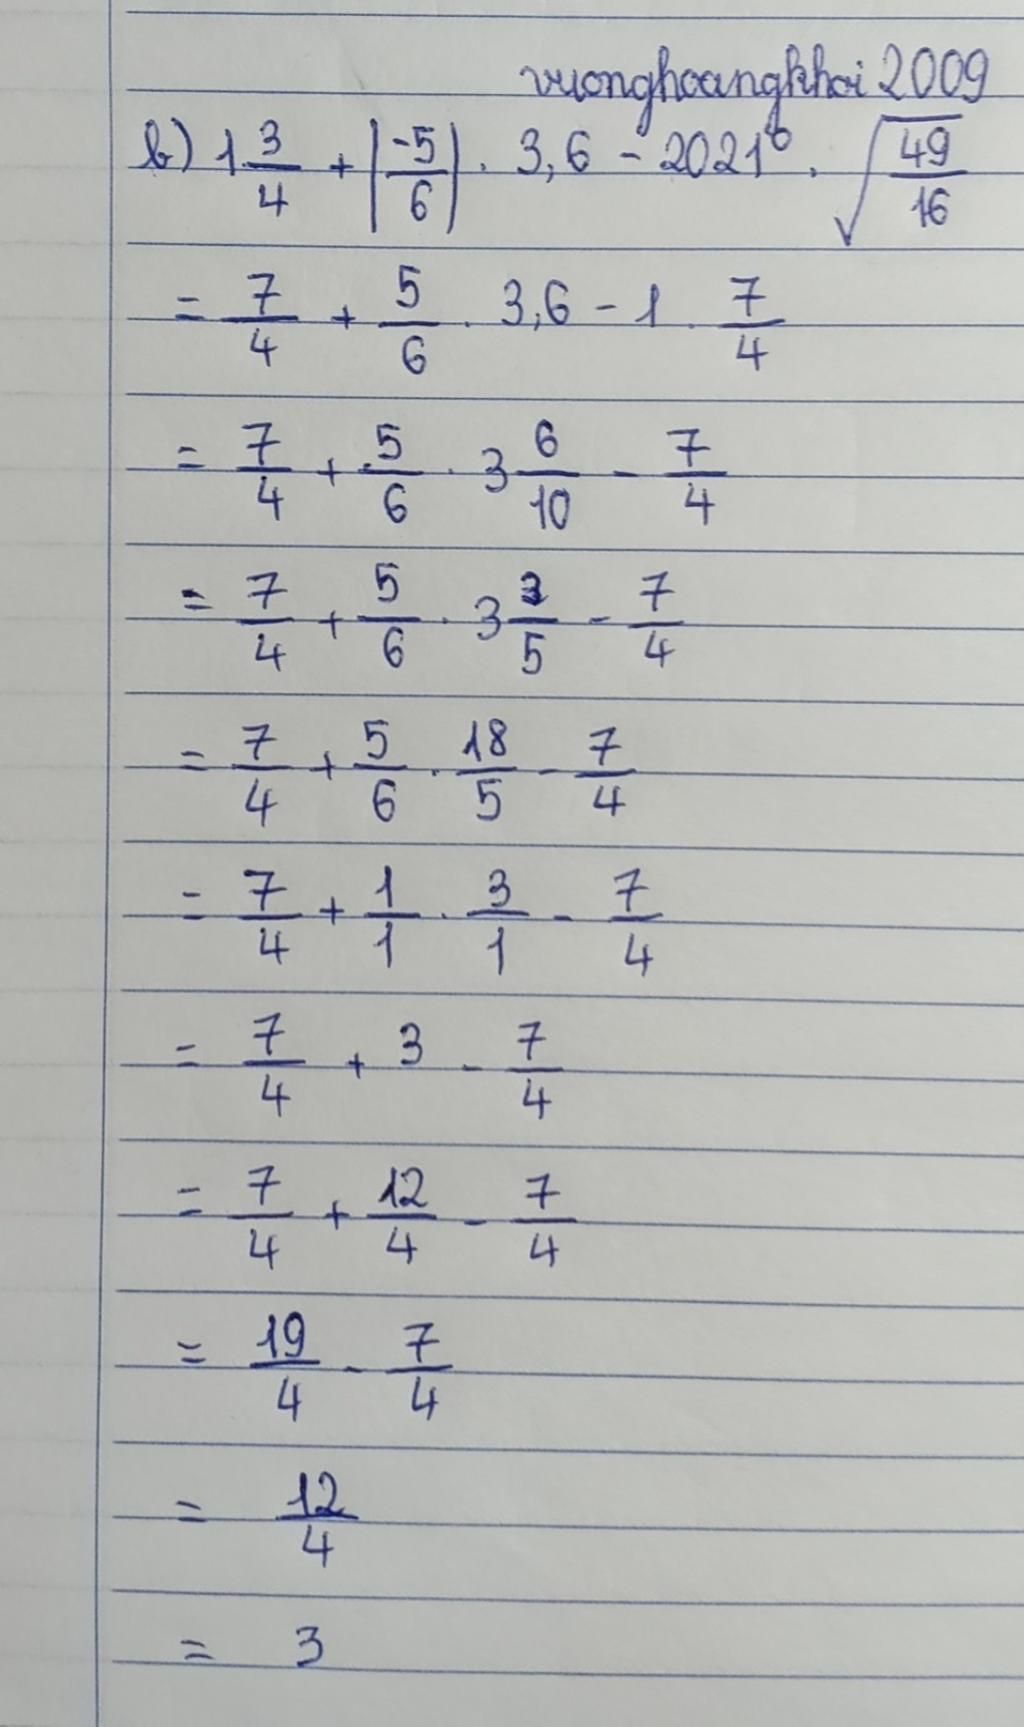 vuonghoangkhoi 2009
b) 1 3/4 + |-5/6| . 3,6 - 2021⁰ . √(49/16)
= 7/4 + 5/6 . 3,6 - 1 . 7/4
= 7/4 + 5/6 . 3 6/10 - 7/4
= 7/4 + 5/6 . 3 3/5 - 7/4
= 7/4 + 5/6 . 18/5 - 7/4
= 7/4 + 1/1 . 3/1 - 7/4
= 7/4 + 3 - 7/4
= 7/4 + 12/4 - 7/4
= 19/4 - 7/4
= 12/4
= 3